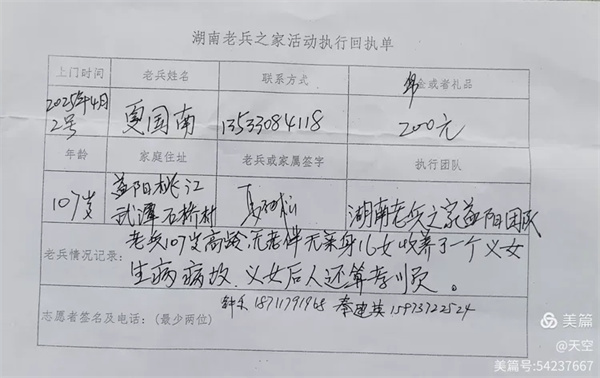 湖南老兵之家活动执行回执单
上门时间 老兵姓名 联系方式 金或者礼品
2025年4月2号 夏国南 13533084118 200元
年龄 家庭住址 老兵或家属签字 执行团队
107岁 益阳桃江武潭石桥村 湖南老兵之家益阳团队
老兵情况记录: 老兵107岁高龄,无老伴无亲身儿女收养了一个义女
生病病故、义女后人还算孝顺。
志愿者签名及电话:(最少两位) 18711791968 秦建英 15973722524
美篇
@天空
美篇号:54237667